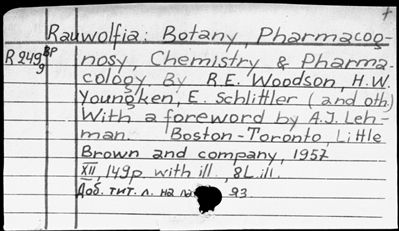 Rauwolfia: Botany, Pharmacog-
R249 BP
9
nosy, Chemistry & Pharma-
cology. By R.E. Woodson, H.W.
Youngken, E. Schlittler (and oth.)
With a foreword by A.J. Leh-
man. Boston-Toronto, Little
Brown and company, 1957
XII, 149p. with ill., 8L.ill.
Доб. тит. л. на 93.